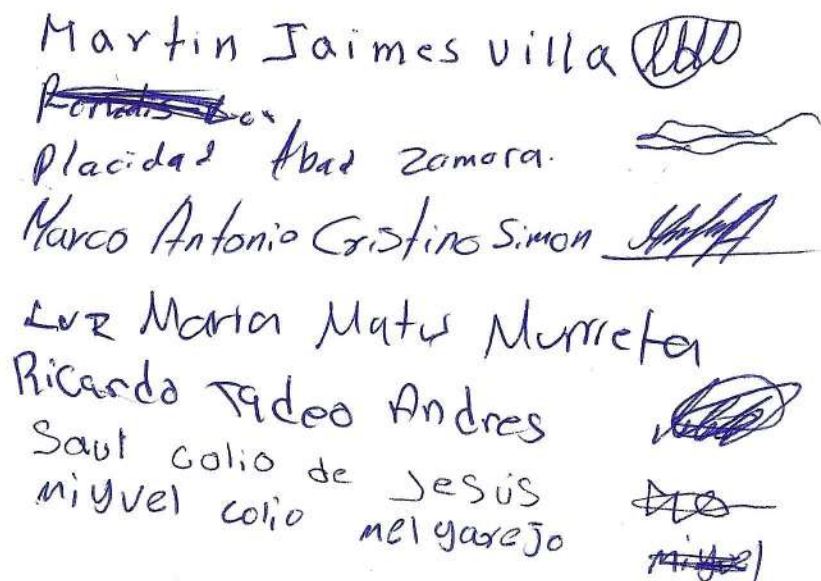 Martin Jaimes villa
Placidad Abad Zamora.
Marco Antonio Cristino Simon
Luz Maria Matus Murrieta
Ricardo Tadeo Andres
Saul colio de Jesús
miguel colio melgarejo miguel